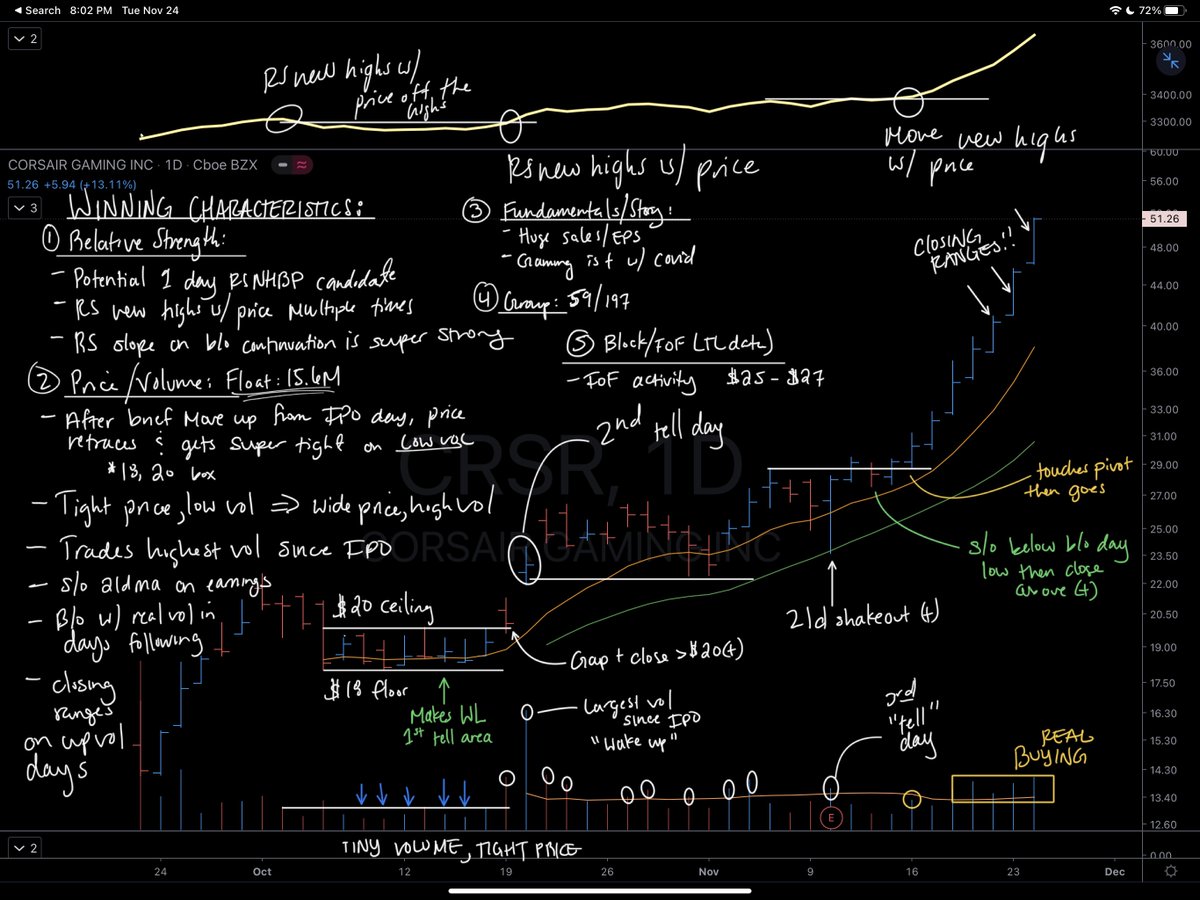 Search 8:02 PM Tue Nov 24
72%
2
RS new highs w/
price off the
highs
3600.00
3400.00
3300.00
Move new highs
w/ price
RS new highs w/ price
CORSAIR GAMING INC · 1D · Cboe BZX
51.26 +5.94 (+13.11%)
3
WINNING CHARACTERISTICS:
① Relative Strength:
- Potential 1 day RSNHBP candidate
- RS new highs w/ price multiple times
- RS slope on b/o continuation is super strong
② Price/Volume: Float: 15.6M
- After brief move up from IPO day, price
retraces & gets super tight on low vol
$18, 20 box
- Tight price, low vol ⇒ wide price, high vol
- Trades highest vol since IPO
- s/o 21dma on earnings
- B/o w/ real vol in
days following
- closing
ranges
on up vol
days
③ Fundamentals/Story:
- Huge sales/EPS
- Gaming is ↑ w/ covid
④ Group: 59/197
⑤ Block/FoF (TL data)
- FoF activity $25 - $27
CLOSING
RANGES!!
2nd tell day
CRSR, 1D
CORSAIR GAMING INC
touches pivot
then goes
s/o below b/o day
low then close
above (+)
21d shakeout (+)
$20 ceiling
Gap + close > $20 (+)
$18 floor
Makes WL
1st tell area
Largest vol
since IPO
"Wake up"
3rd
"tell"
day
REAL
BUYING
E
TINY VOLUME, TIGHT PRICE
60.00
56.00
51.26
48.00
44.00
40.00
36.00
33.00
31.00
29.00
27.00
25.00
23.50
22.00
20.50
19.00
17.50
16.30
15.30
14.30
13.40
12.60
2
0.00
24 Oct 12 19 26 Nov 9 16 23 Dec